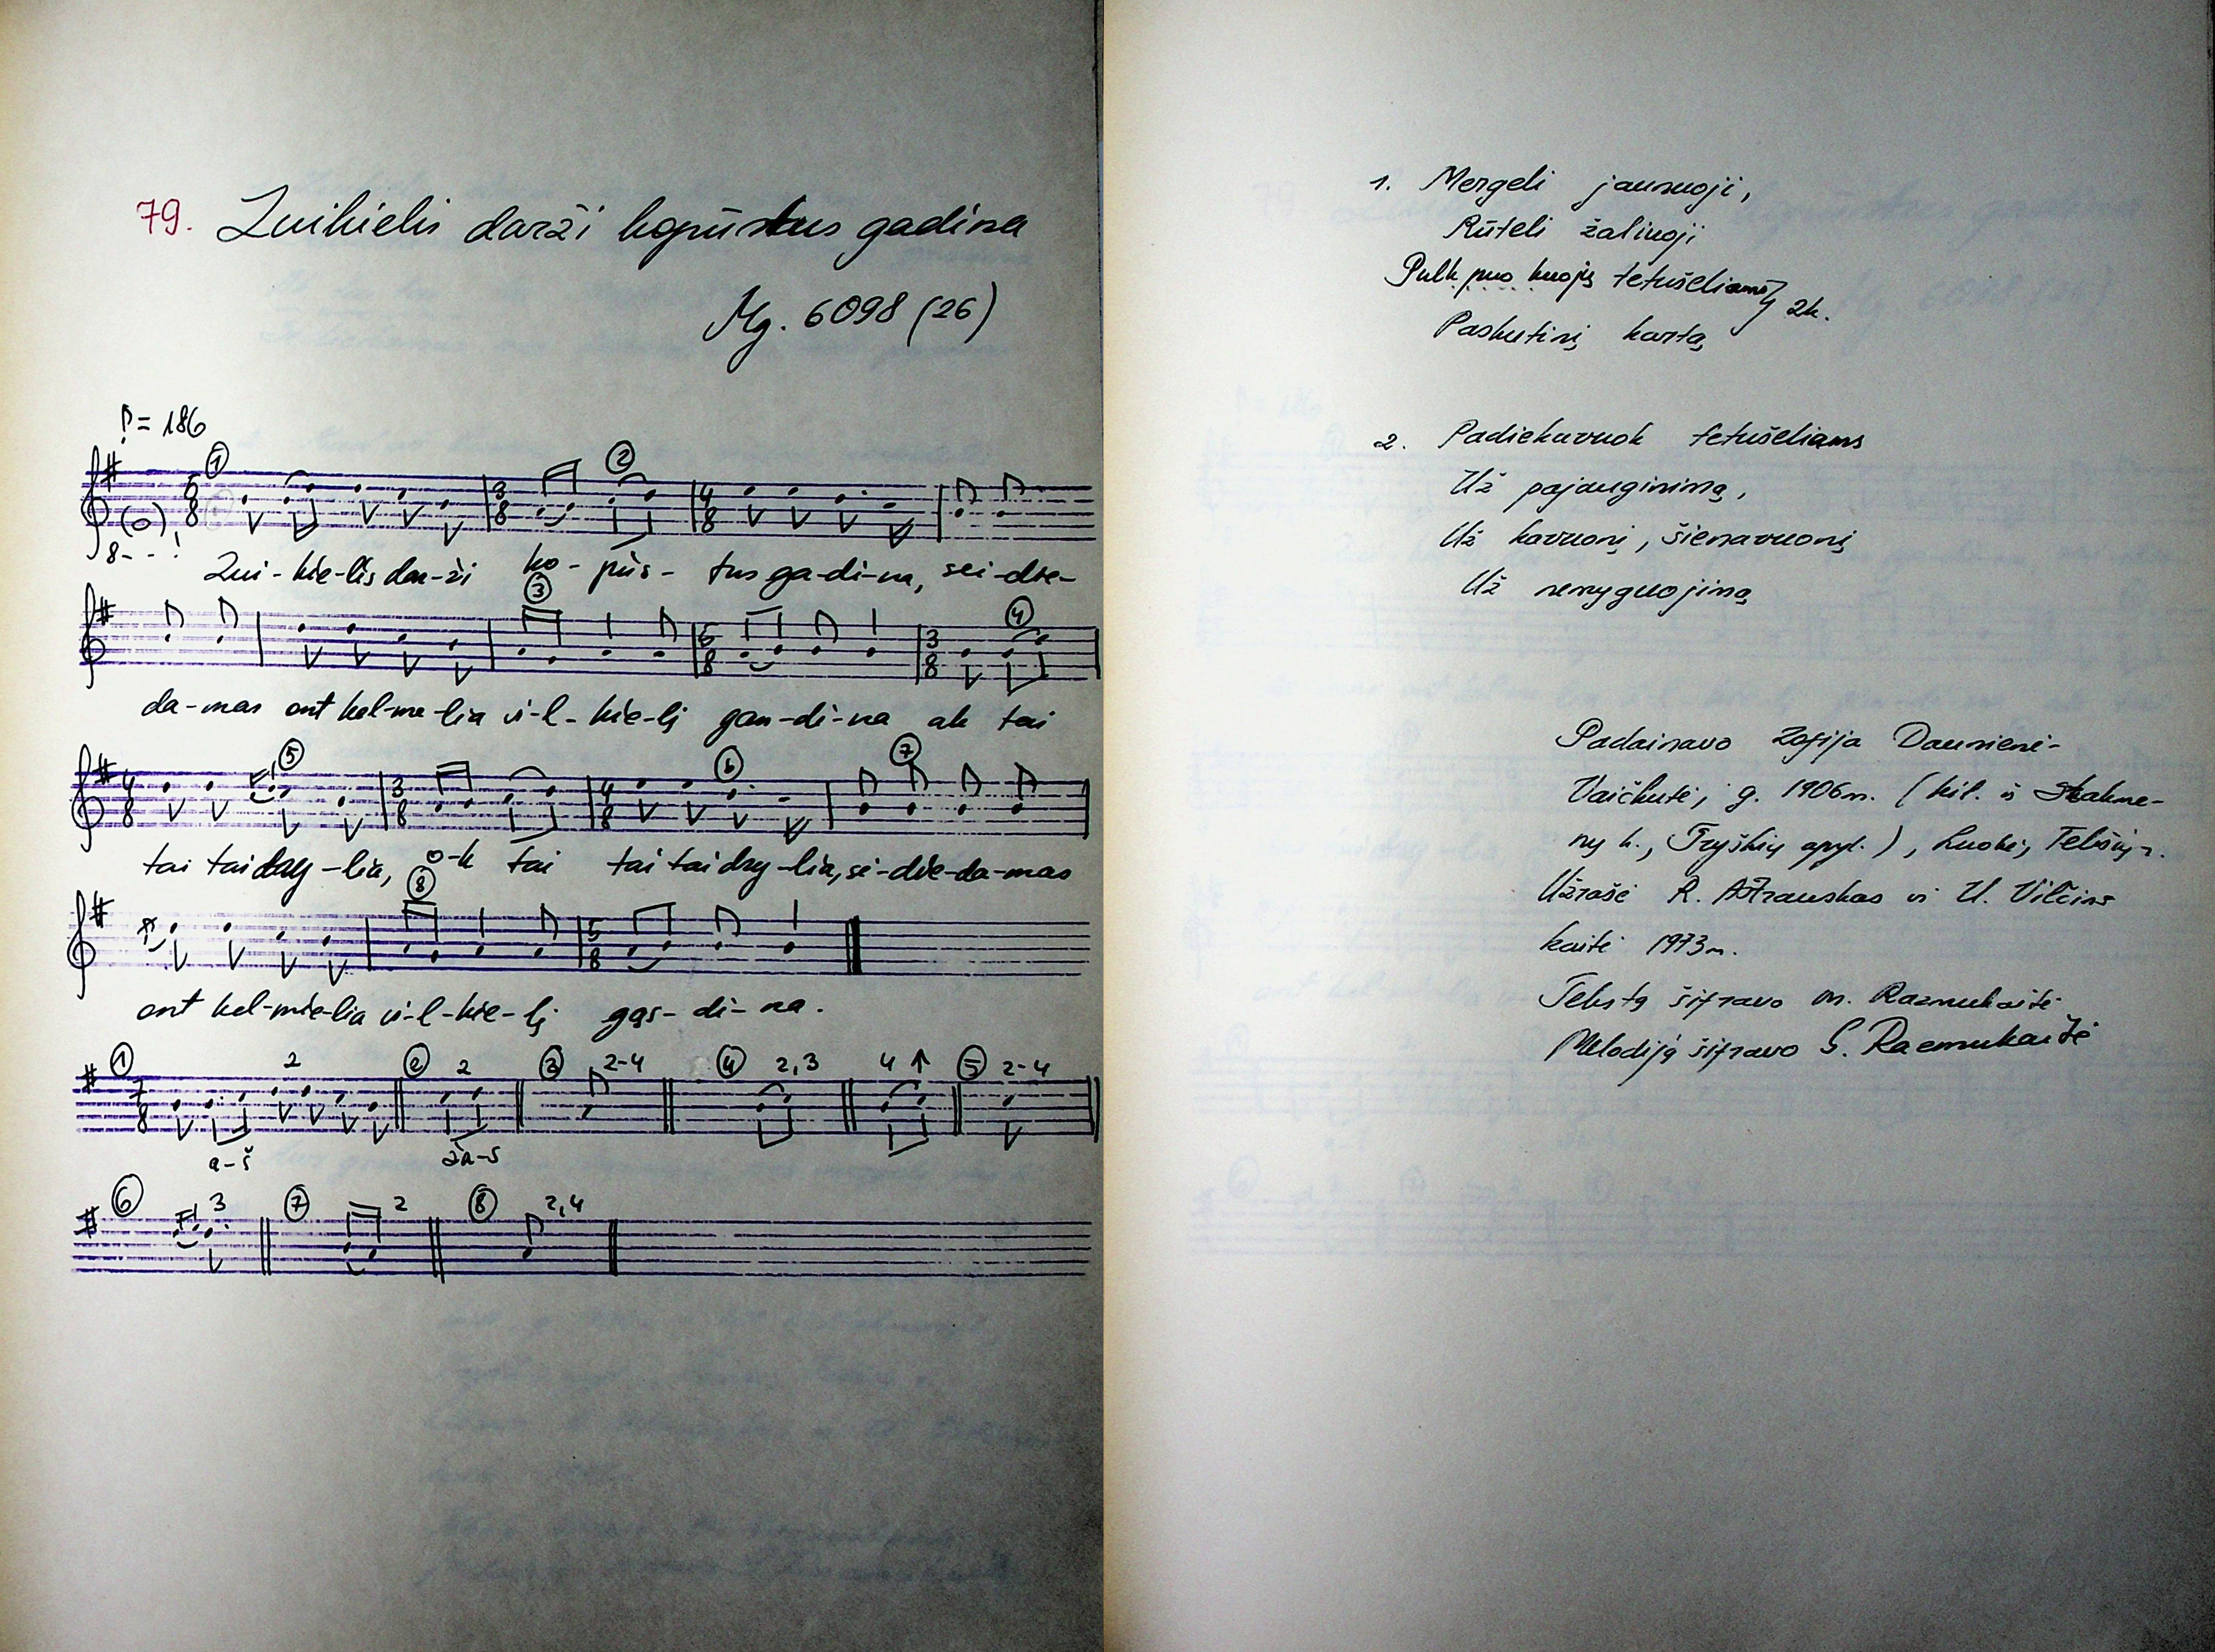 79. Zuikielis darži kopūstus gadina
Mg. 6098 (26)
♪= 186
Zui-kie-lis dar-ži ko-pūs-tus ga-di-na, sei-die-
da-mas ont kel-me-lia vi-l-kie-lį gan-di-na ak tai
tai tai dry-lia, o-k tai tai tai dry-lia, se-die-da-mas
ont kel-mie-lia vi-l-kie-lį gąs-di-na.
① 2 ② 2 ③ 2-4 ④ 2,3 4 ↑ ⑤ 2-4
a-š ža-s
⑥ 3 ⑦ 2 ⑧ 2,4
1. Mergeli jaunuoji,
Rūteli žalinoji
Pulk puo kuojų tetušeliams } 2k.
Paskutinį kartą
2. Padiekavuok tetušeliams
Už pajauginimą,
Už kavuonį, šienavuonį
Už nemyguojimą
Padainavo Zofija Daunienė-
Vaičkutė, g. 1906 m. (kil. iš Skabme-
nų k., Tryškių apyl.), Luokė, Telšių r.
Užrašė R. Astrauskas ir U. Vilčins
kaitė 1973 m.
Tekstą šifravo m. Razmukaitė
Melodiją šifravo S. Razmukaitė